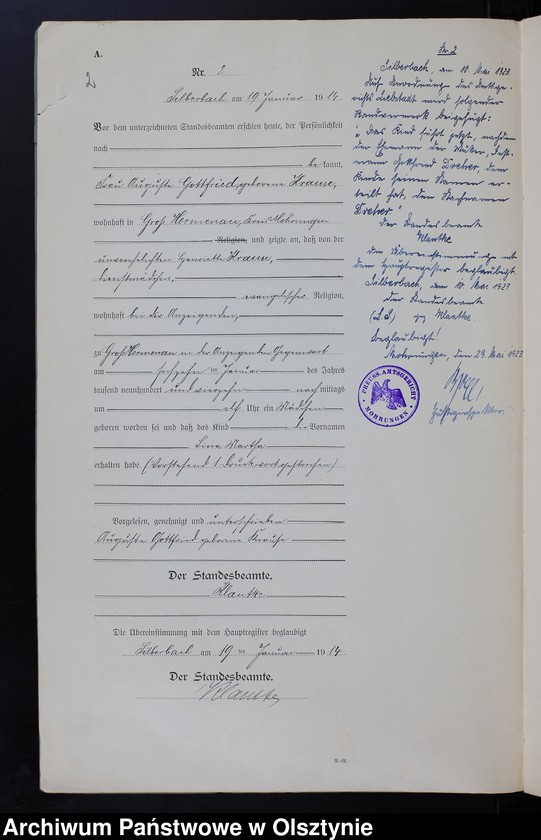 A.
2
Nr. 2
Silberbach am 19 Januar 1914.
Vor dem unterzeichneten Standesbeamten erschien heute, der Persönlichkeit
nach
bekannt,
Frau Auguste Gottfried, geborene Krause,
wohnhaft in Groß Hermenau, Kreis Mohrungen
Religion, und zeigte an, daß von der
unverehelichten Henriette Krause,
Dienstmädchen,
evangelischer Religion,
wohnhaft bei der Anzeigenden,
zu Groß Hermenau in der Anzeigenden Gegenwart
am sechzehn ten Januar des Jahres
tausend neunhundert und vierzehn nach mittags
um elf Uhr ein Mädchen
geboren worden sei und daß das Kind die Vornamen
Lina Martha
erhalten habe. (Vorstehend 1 Druckwort gestrichen)
Vorgelesen, genehmigt und unterschrieben
Auguste Gottfried geborene Krause
Der Standesbeamte.
Klautke
Die Übereinstimmung mit dem Hauptregister beglaubigt
Silberbach am 19 ten Januar 1914.
Der Standesbeamte.
Klautke
Nr. 2
Silberbach, am 10. Mai 1923.
Auf Anordnung des Amtsge-
richts Liebstadt wird folgender
Randvermerk beigefügt:
"Das Kind führt jetzt, nachdem
der Ehemann der Mutter, Inst-
mann Dreher, dem
Kinde seinen Namen er-
teilt hat, den Nachnamen
Dreher."
Der Standesbeamte
Klautke
Die Übereinstimmung mit
dem Hauptregister beglaubigt
Silberbach, am 10 Mai 1923
Der Standesbeamte
(L.S.) gez Klautke
Beglaubigt!
Mohrungen, den 29. Mai 1923
PREUSS. AMTSGERICHT
MOHRUNGEN
Archiwum Państwowe w Olsztynie